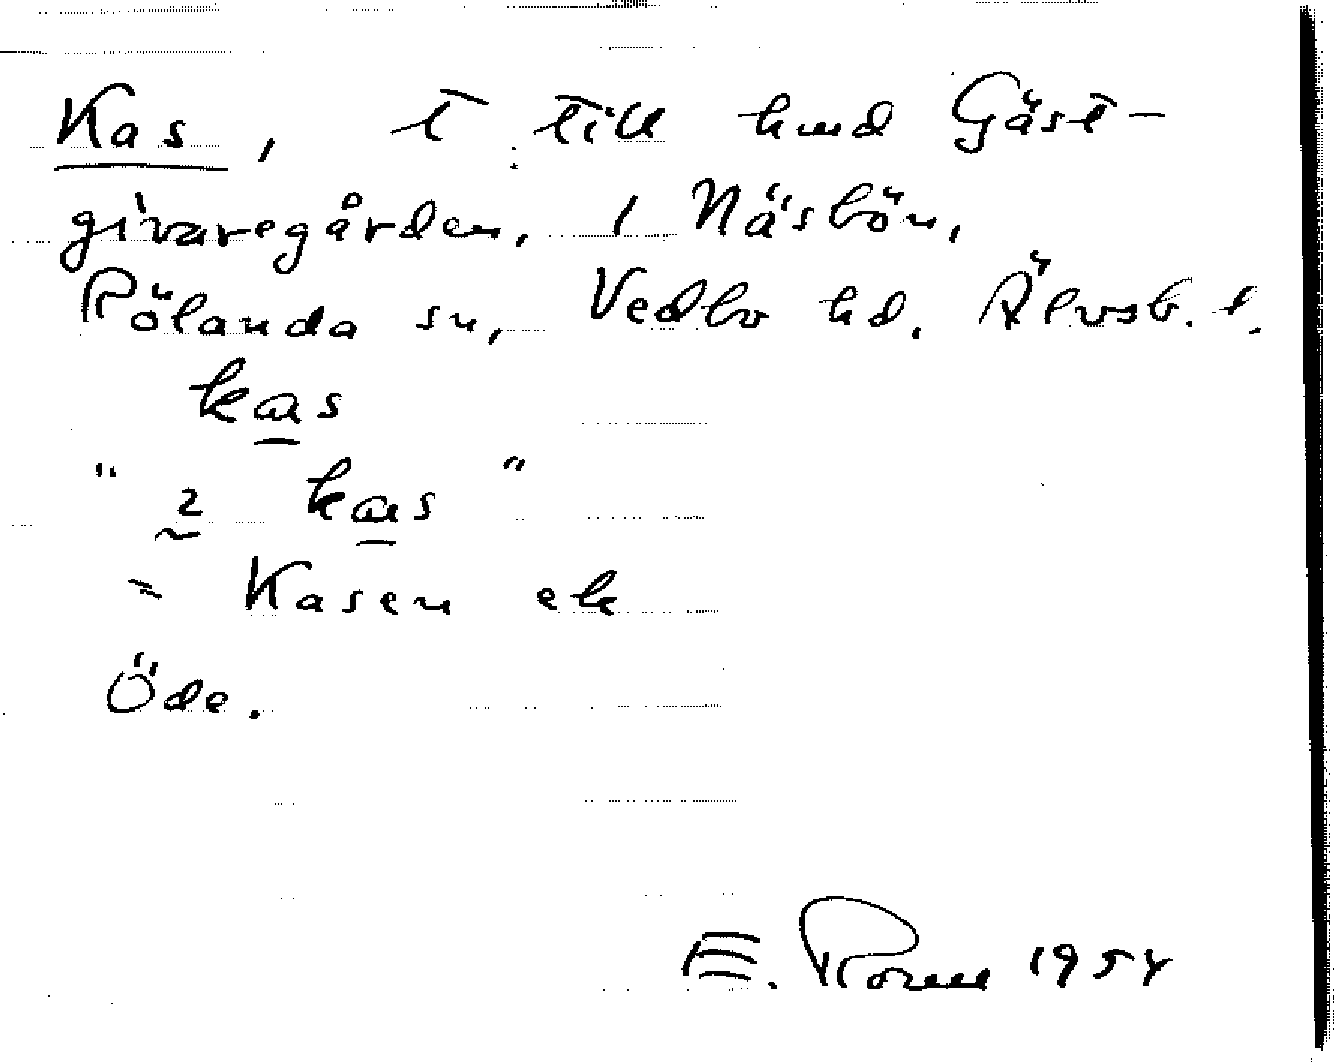 Kas, t till hmd Gäst-
givaregården, 1 Näsbön,
Rölanda sn, Vedbo hd. Älvsb. l.
kas
" 2 kas "
= Kasen ek
Öde.
E. 1954